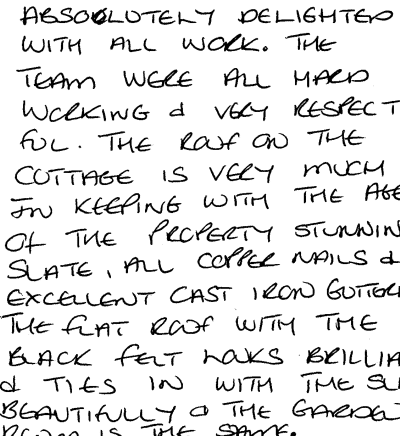 ABSOLUTELY DELIGHTED
WITH ALL WORK. THE
TEAM WERE ALL HARD
WORKING & VERY RESPECT
FUL. THE ROOF ON THE
COTTAGE IS VERY MUCH
IN KEEPING WITH THE AGE
OF THE PROPERTY STUNNIN
SLATE, ALL COPPER NAILS &
EXCELLENT CAST IRON GUTTER
THE FLAT ROOF WITH THE
BLACK FELT LOOKS BRILLIA
& TIES IN WITH THE SL
BEAUTIFULLY & THE GARDEN
ROOM IS THE SAME.